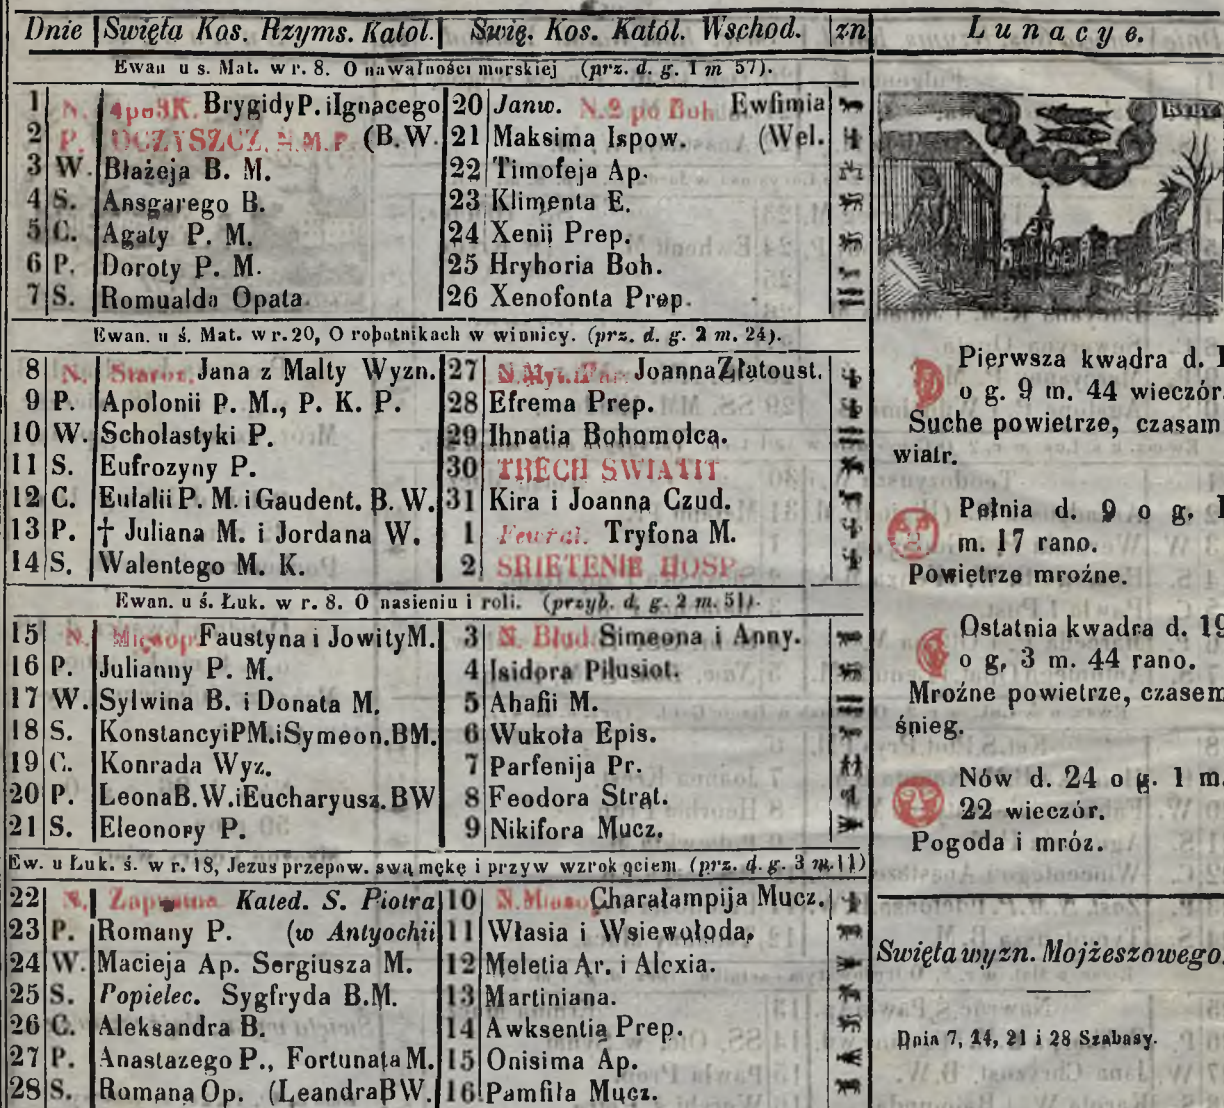 Dnie Swięta Kos. Rzyms. Katol. Swię. Kos. Katól. Wschod. zn
Ewan u s. Mat. w r. 8. O nawałności morskiej (prz. d. g. 1 m 57).
1 N. 4po3K. BrygidyP. iIgnacego 20 Janw. N.2 po Boh. Ewfimia
2 P. OCZYSZCZ. N.M.P. (B.W. 21 Maksima Ispow. (Wel.
3 W. Błażeja B. M. 22 Timofeja Ap.
4 S. Ansgarego B. 23 Klimenta E.
5 C. Agaty P. M. 24 Xenii Prep.
6 P. Doroty P. M. 25 Hryhoria Boh.
7 S. Romualda Opata. 26 Xenofonta Prep.
Ewan. u ś. Mat. w r. 20, O robotnikach w winnicy. (prz. d. g. 2 m. 24).
8 N. Staroz. Jana z Malty Wyzn. 27 N. Myt. i Far. JoannaZłatoust.
9 P. Apolonii P. M., P. K. P. 28 Efrema Prep.
10 W. Scholastyki P. 29 Ihnatia Bohomolca.
11 S. Eufrozyny P. 30 TRECH SWIATIT
12 C. Eulalii P. M. i Gaudent. B. W. 31 Kira i Joanna Czud.
13 P. † Juliana M. i Jordana W. 1 Fewral. Tryfona M.
14 S. Walentego M. K. 2 SRIETENIE HOSP.
Ewan. u ś. Łuk. w r. 8. O nasieniu i roli. (przyb. d. g. 2 m. 51).
15 N. Mięsop. Faustyna i JowityM. 3 N. Błud. Simeona i Anny.
16 P. Julianny P. M. 4 Isidora Piłusiot.
17 W. Sylwina B. i Donata M. 5 Ahafii M.
18 S. KonstancyiPM.iSymeon.BM. 6 Wukoła Epis.
19 C. Konrada Wyz. 7 Parfenija Pr.
20 P. LeonaB.W.iEucharyusz.BW 8 Feodora Strat.
21 S. Eleonory P. 9 Nikifora Mucz.
Ew. u Łuk. ś. w r. 18, Jezus przepow. swą mękę i przyw wzrok (prz. d. g. 3 m. 11)
22 N. Zapustna Kated. S. Piotra 10 N. Mięsop. Charałampija Mucz.
23 P. Romany P. (w Antyochii 11 Własia i Wsiewołoda.
24 W. Macieja Ap. Sergiusza M. 12 Meletia Ar. i Alexia.
25 S. Popielec. Sygfryda B.M. 13 Martiniana.
26 C. Aleksandra B. 14 Awksentia Prep.
27 P. Anastazego P., Fortunata M. 15 Onisima Ap.
28 S. Romana Op. (LeandraBW. 16 Pamfiła Mucz.
Lunacye.
Pierwsza kwadra d. 1
o g. 9 m. 44 wieczór.
Suche powietrze, czasam
wiatr.
Pełnia d. 9 o g. 1
m. 17 rano.
Powietrze mroźne.
Ostatnia kwadra d. 19
o g. 3 m. 44 rano.
Mroźne powietrze, czasem
śnieg.
Nów d. 24 o g. 1 m.
22 wieczór.
Pogoda i mróz.
Swięta wyzn. Mojżeszowego.
Dnia 7, 14, 21 i 28 Szabasy.